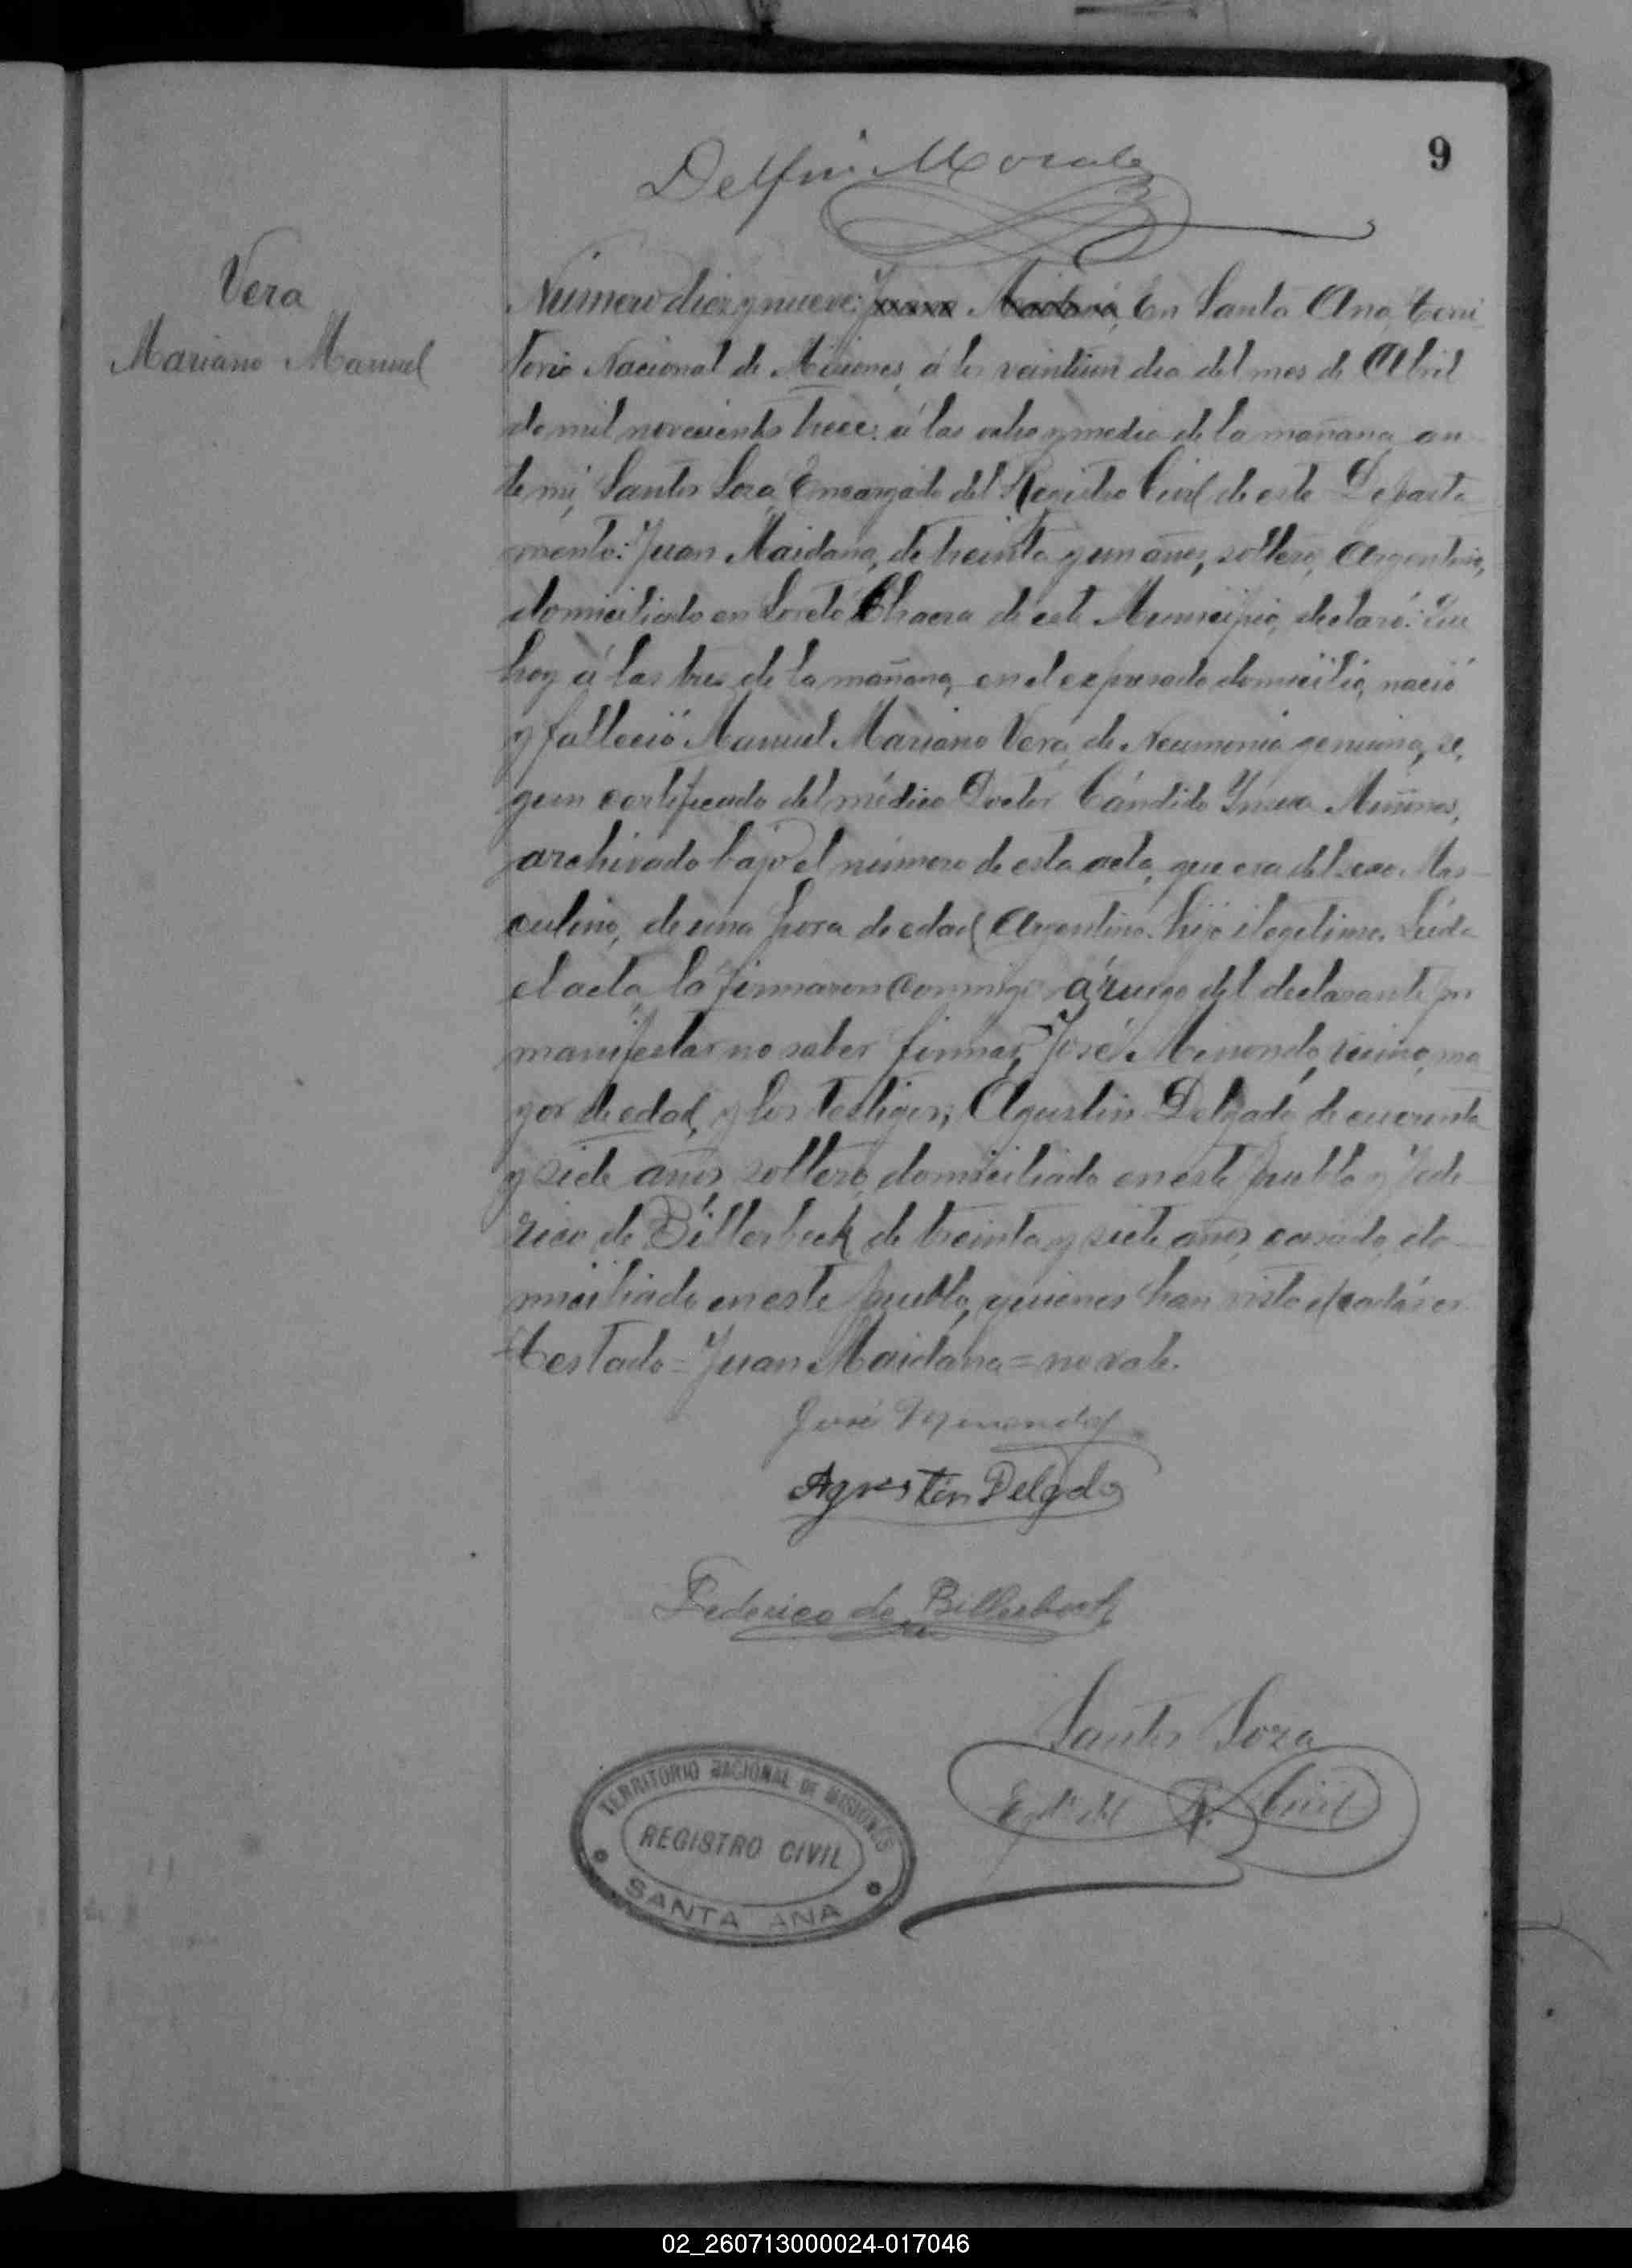 9
Delfin Morales
Vera
Mariano Manuel
Número diez y nueve: Juan Maidana, En Santa Ana, terri
torio Nacional de Misiones, á los veintiun dia del mes de Abril
de mil novecientos trece: á las ocho y media de la mañana an
te mí, Santos Soza, Encargado del Registro Civil de este Departa
mento: Juan Maidana, de treinta y un años, soltero, Argentino,
domiciliado en Loreto Chacra de este Municipio, declaró: Que
hoy á las tres de la mañana, en el expresado domicilio, nació
y falleció Manuel Mariano Vera, de Neumonia genuina, se
gun certificado del médico Doctor Cándido Miñones,
archivado bajo el número de esta acta, que era del sexo Mas
culino, de una hora de edad, Argentino. hijo ilegetimo. Leida
el acta, la firmaron conmigo á ruego del declarante por
manifestar no saber firmar, José Minondo, vecino, ma
yor de edad, y los testigos, Agustin Delgado de cuarenta
y siete años, soltero, domiciliado en este pueblo y Fede
rico de Billerbeck de treinta y siete años, casado, do
miciliado en este pueblo, quienes han visto el cadáver
Testado = Juan Maidana = no vale.
José Minondo
Agustin Delgado
Federico de Billerbeck
Santos Soza
Egdo del R. Civil
TERRITORIO NACIONAL DE MISIONES
REGISTRO CIVIL
SANTA ANA
02_260713000024-017046